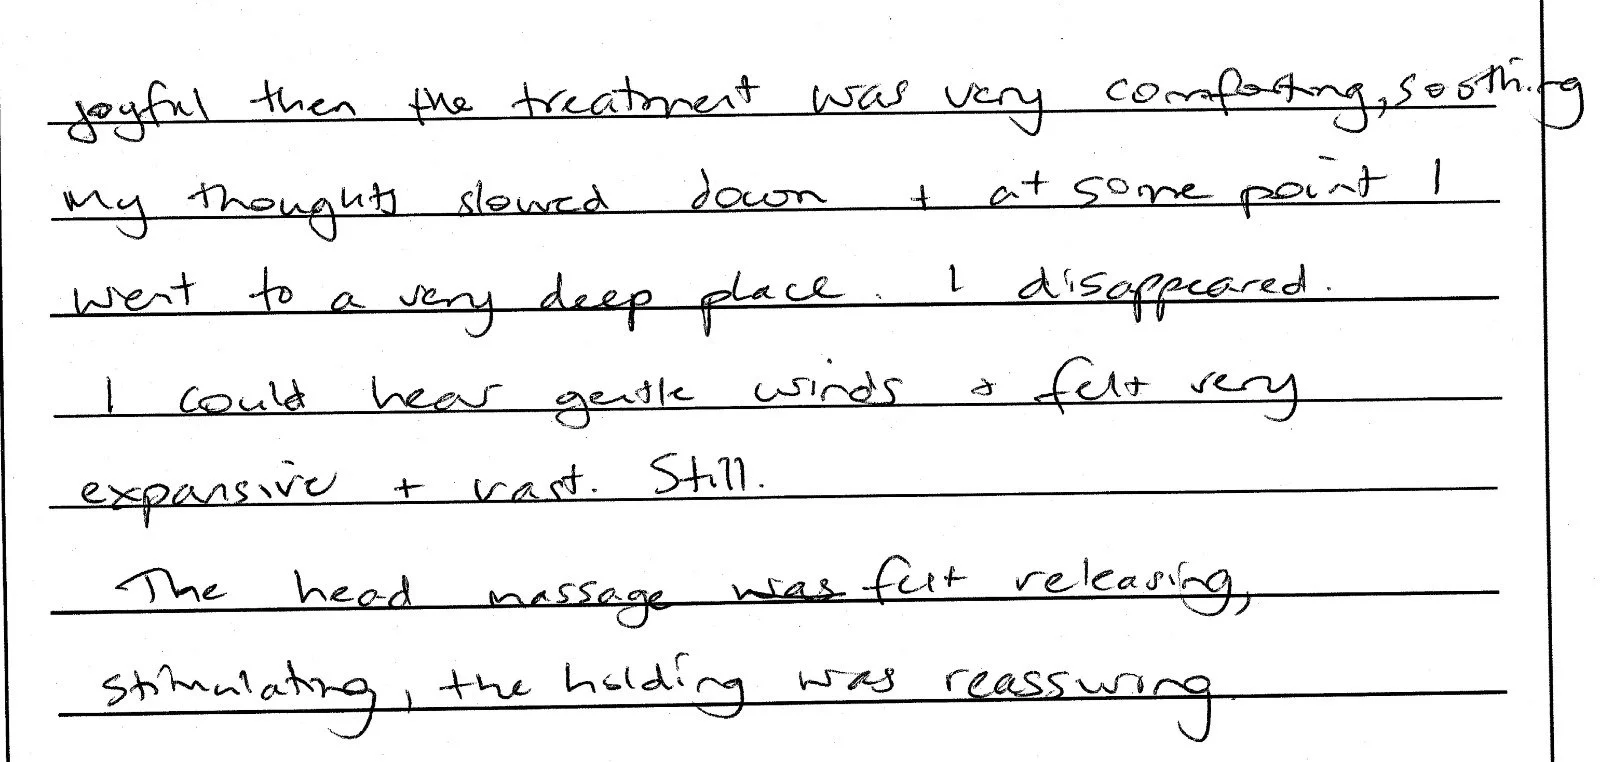 joyful then the treatment was very comforting, soothing
My thoughts slowed down + at some point I
went to a very deep place. I disappeared.
I could hear gentle winds + felt very
expansive + vast. Still.
The head massage was felt releasing,
stimulating, the holding was reasswing.